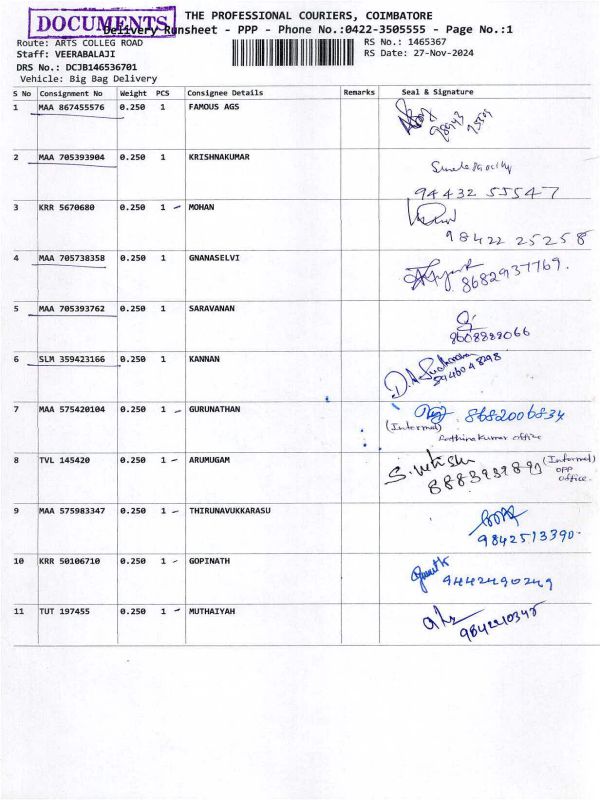 DOCUMENTS
THE PROFESSIONAL COURIERS, COIMBATORE
Delivery Runsheet - PPP - Phone No.:0422-3505555 - Page No.:1
Route: ARTS COLLEG ROAD
RS No.: 1465367
Staff: VEERABALAJI
RS Date: 27-Nov-2024
DRS No.: DCJB146536701
Vehicle: Big Bag Delivery
S No Consignment No Weight PCS Consignee Details Remarks Seal & Signature
1 MAA 867455576 0.250 1 FAMOUS AGS
2 MAA 705393904 0.250 1 KRISHNAKUMAR
94432 55547
3 KRR 5670680 0.250 1 MOHAN
98422 25258
4 MAA 705738358 0.250 1 GNANASELVI
8682937769.
5 MAA 705393762 0.250 1 SARAVANAN
8608888066
6 SLM 359423166 0.250 1 KANNAN
7 MAA 575420104 0.250 1 GURUNATHAN
8682006834
(Internal)
Rathinakumar office
8 TVL 145420 0.250 1 ARUMUGAM
(Internal)
OPP
office.
9 MAA 575983347 0.250 1 THIRUNAVUKKARASU
9842513390.
10 KRR 50106710 0.250 1 GOPINATH
9442490249
11 TUT 197455 0.250 1 MUTHAIYAH